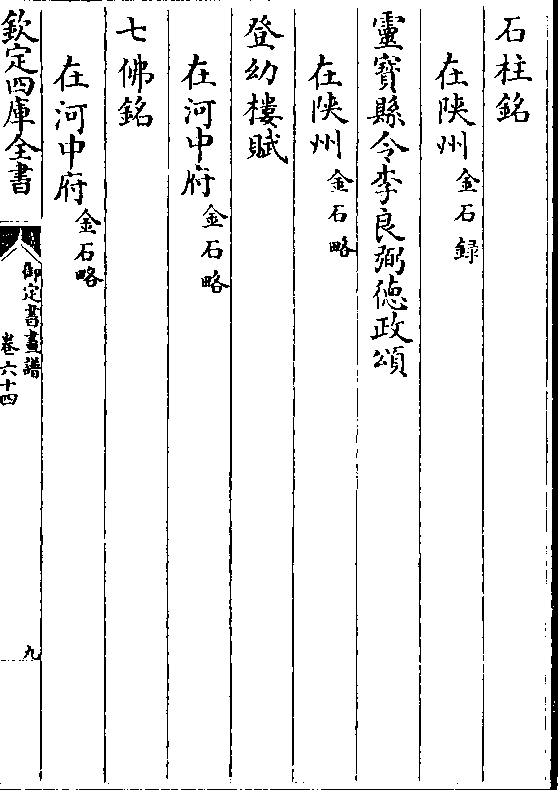 石柱銘
在陜州金石録
靈寳縣令李良弼徳政頌
在陜州金石略
登幼樓賦
在河中府金石略
七佛銘
在河中府金石略
欽定四庫全書
御定書畫譜
卷六十四
九